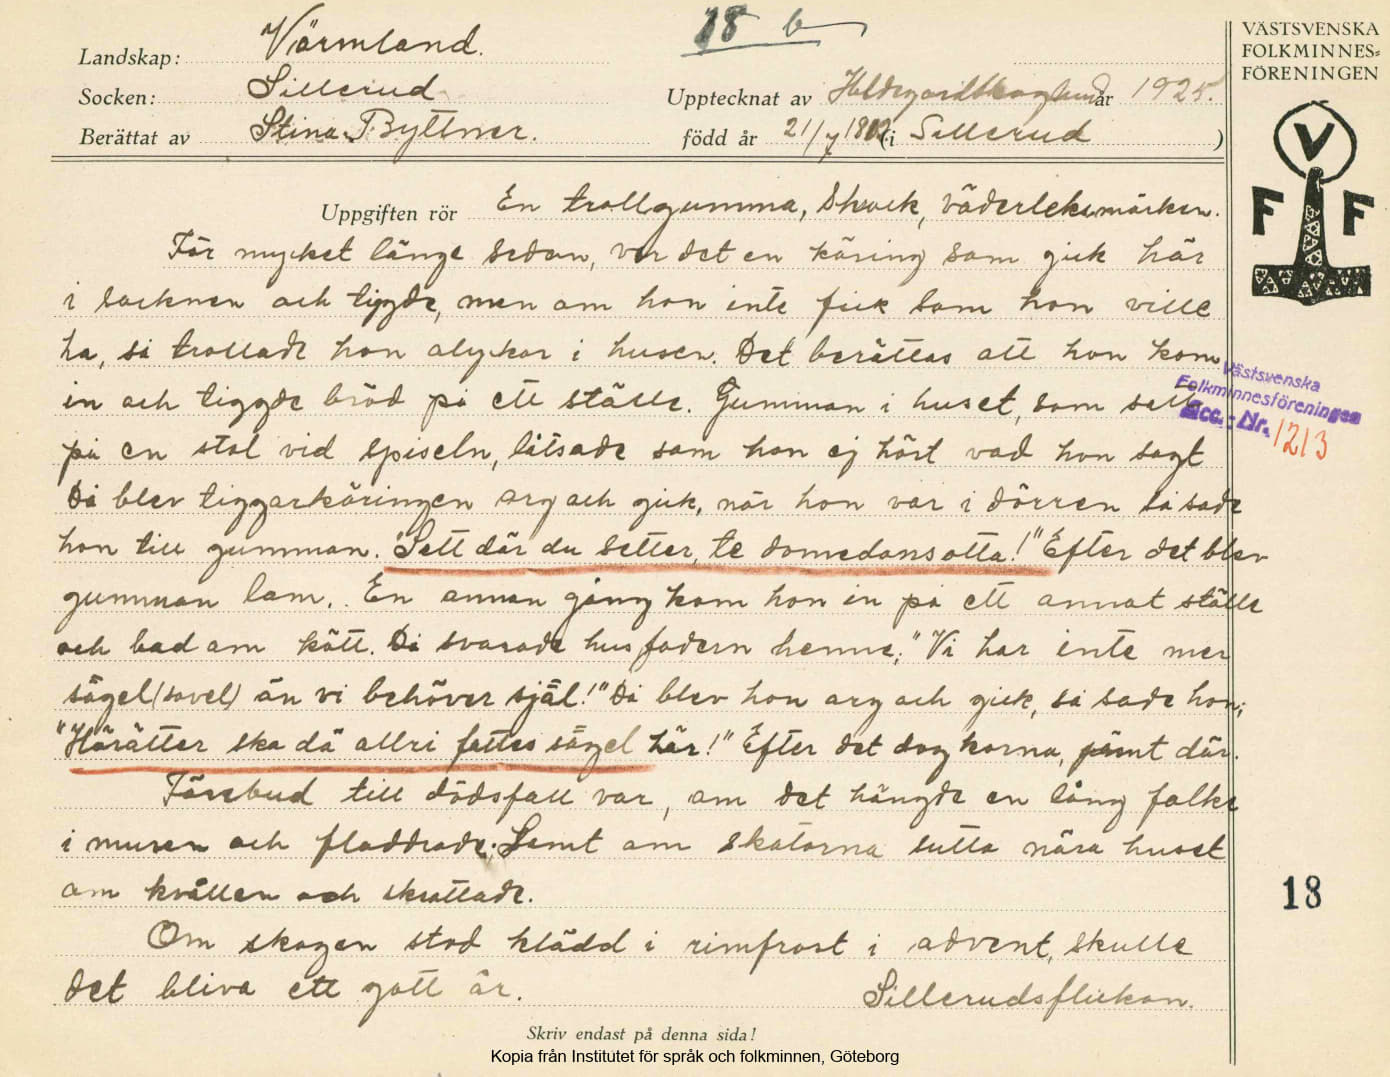 18 b
Landskap: Värmland.
Socken: Sillerud
Berättat av Stina Byttner.
Upptecknat av Hildegard Skoglund år 1925.
född år 21/7 (i Sillerud )
VÄSTSVENSKA
FOLKMINNES=
FÖRENINGEN
V
F F
Uppgiften rör En trollgumma, Skrock, väderleksmärken.
För mycket länge sedan, var det en käring som gick här
i socknen och tiggde, men om hon inte fick som hon ville
ha, så trollade hon olyckor i husen. Det berättas att hon kom
in och tiggde bröd på ett ställe. Gumman i huset, som satt
på en stol vid spiseln, låtsade som hon ej hört vad hon sagt
Då blev tiggarkäringen arg och gick, när hon var i dörren så sade
hon till gumman. "Sett där du setter, te domedansotta!" Efter det blev
gumman lam. En annan gång kom hon in på ett annat ställe
och bad om kött. Då svarade husfadern henne; "Vi har inte mer
sögel (sovel) än vi behöver själ!" Då blev hon arg och gick, så sade hon;
"Härätter ska dä allri fattes sögel här!" Efter det dog korna, jämt där.
Förebud till dödsfall var, om det hängde en lång falke
i muren och fladdrade; Samt om skatorna sutto nära huset
om kvällen och skrattade.
Om skogen stod klädd i rimfrost i advent, skulle
det bliva ett gott år. Sillerudsflickan.
Västsvenska
Folkminnesföreningen
Acc.-Nr. 1213
18
Skriv endast på denna sida!
Kopia från Institutet för språk och folkminnen, Göteborg